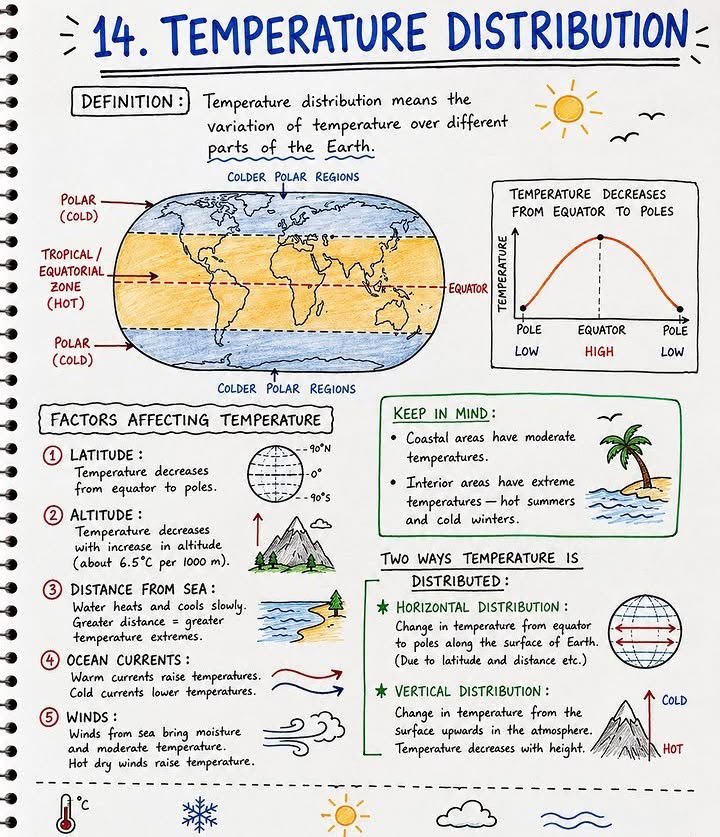 14. TEMPERATURE DISTRIBUTION
DEFINITION:
Temperature distribution means the
variation of temperature over different
parts of the Earth.
COLDER POLAR REGIONS
POLAR
(COLD)
TROPICAL /
EQUATORIAL
ZONE
(HOT)
POLAR
(COLD)
EQUATOR
COLDER POLAR REGIONS
TEMPERATURE DECREASES
FROM EQUATOR TO POLES
TEMPERATURE
POLE EQUATOR POLE
LOW HIGH LOW
FACTORS AFFECTING TEMPERATURE
1 LATITUDE:
Temperature decreases
from equator to poles.
90°N
0°
90°S
2 ALTITUDE:
Temperature decreases
with increase in altitude
(about 6.5°C per 1000 m).
3 DISTANCE FROM SEA:
Water heats and cools slowly.
Greater distance = greater
temperature extremes.
4 OCEAN CURRENTS:
Warm currents raise temperatures.
Cold currents lower temperatures.
5 WINDS:
Winds from sea bring moisture
and moderate temperature.
Hot dry winds raise temperature.
KEEP IN MIND:
• Coastal areas have moderate
temperatures.
• Interior areas have extreme
temperatures — hot summers
and cold winters.
TWO WAYS TEMPERATURE IS
DISTRIBUTED:
★ HORIZONTAL DISTRIBUTION:
Change in temperature from equator
to poles along the surface of Earth.
(Due to latitude and distance etc.)
★ VERTICAL DISTRIBUTION:
Change in temperature from the
surface upwards in the atmosphere.
Temperature decreases with height.
COLD
HOT
°C